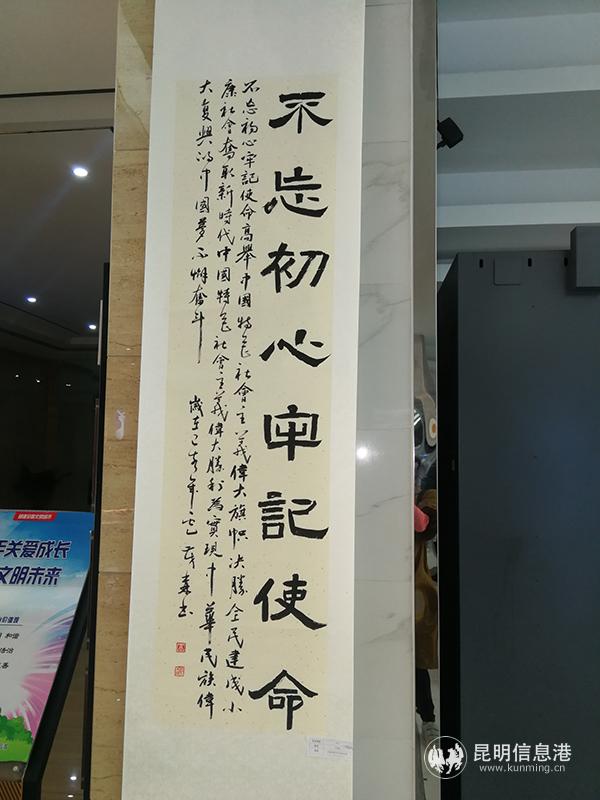 不忘初心牢記使命
不忘初心牢記使命高舉中國特色社會主義偉大旗幟决勝全民建成小
康社會奪取新時代中國特色社會主義偉大勝利為實現中華民族偉
大复興的中國夢不懈奮斗
歲在己亥年
书
关爱成长
文明未来
和谐
法治
昆明信息港
www.kunming.cn